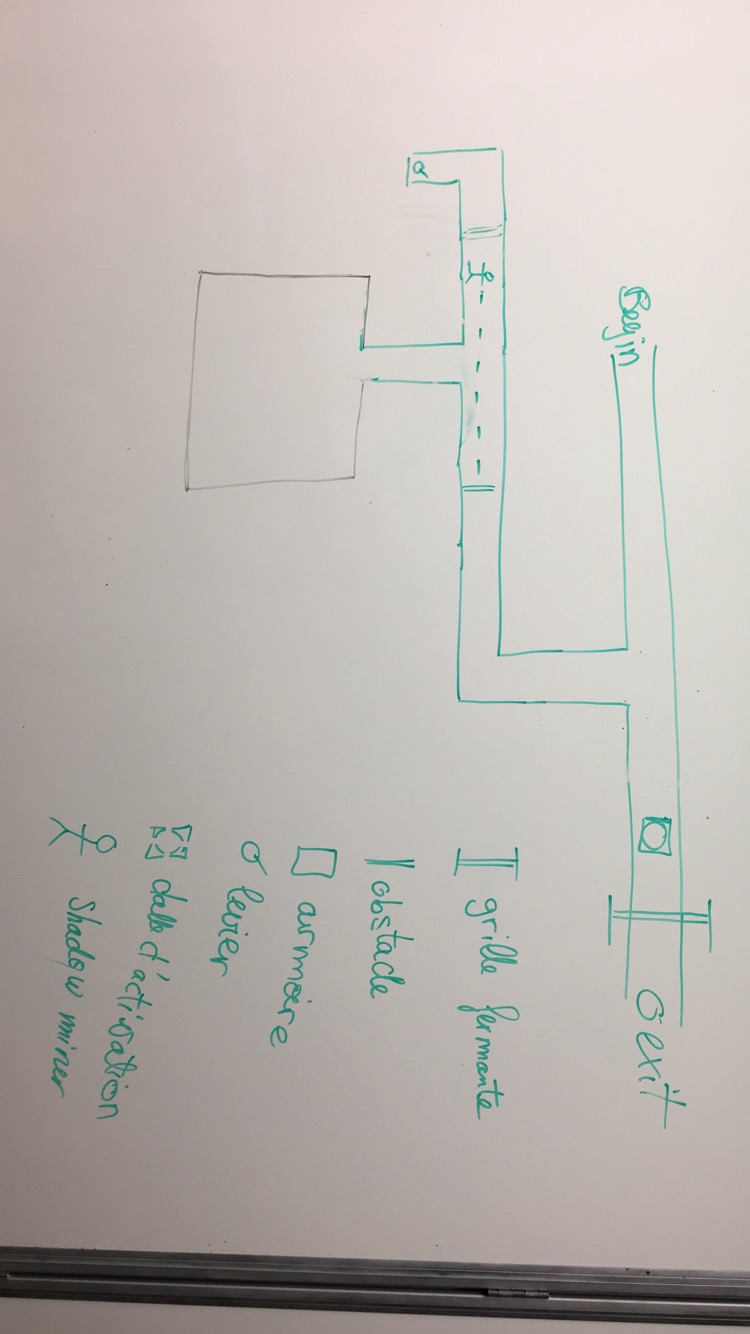 Begin
exit
grille fermante
obstacle
armoire
levier
dalle d'activation
shadow miner